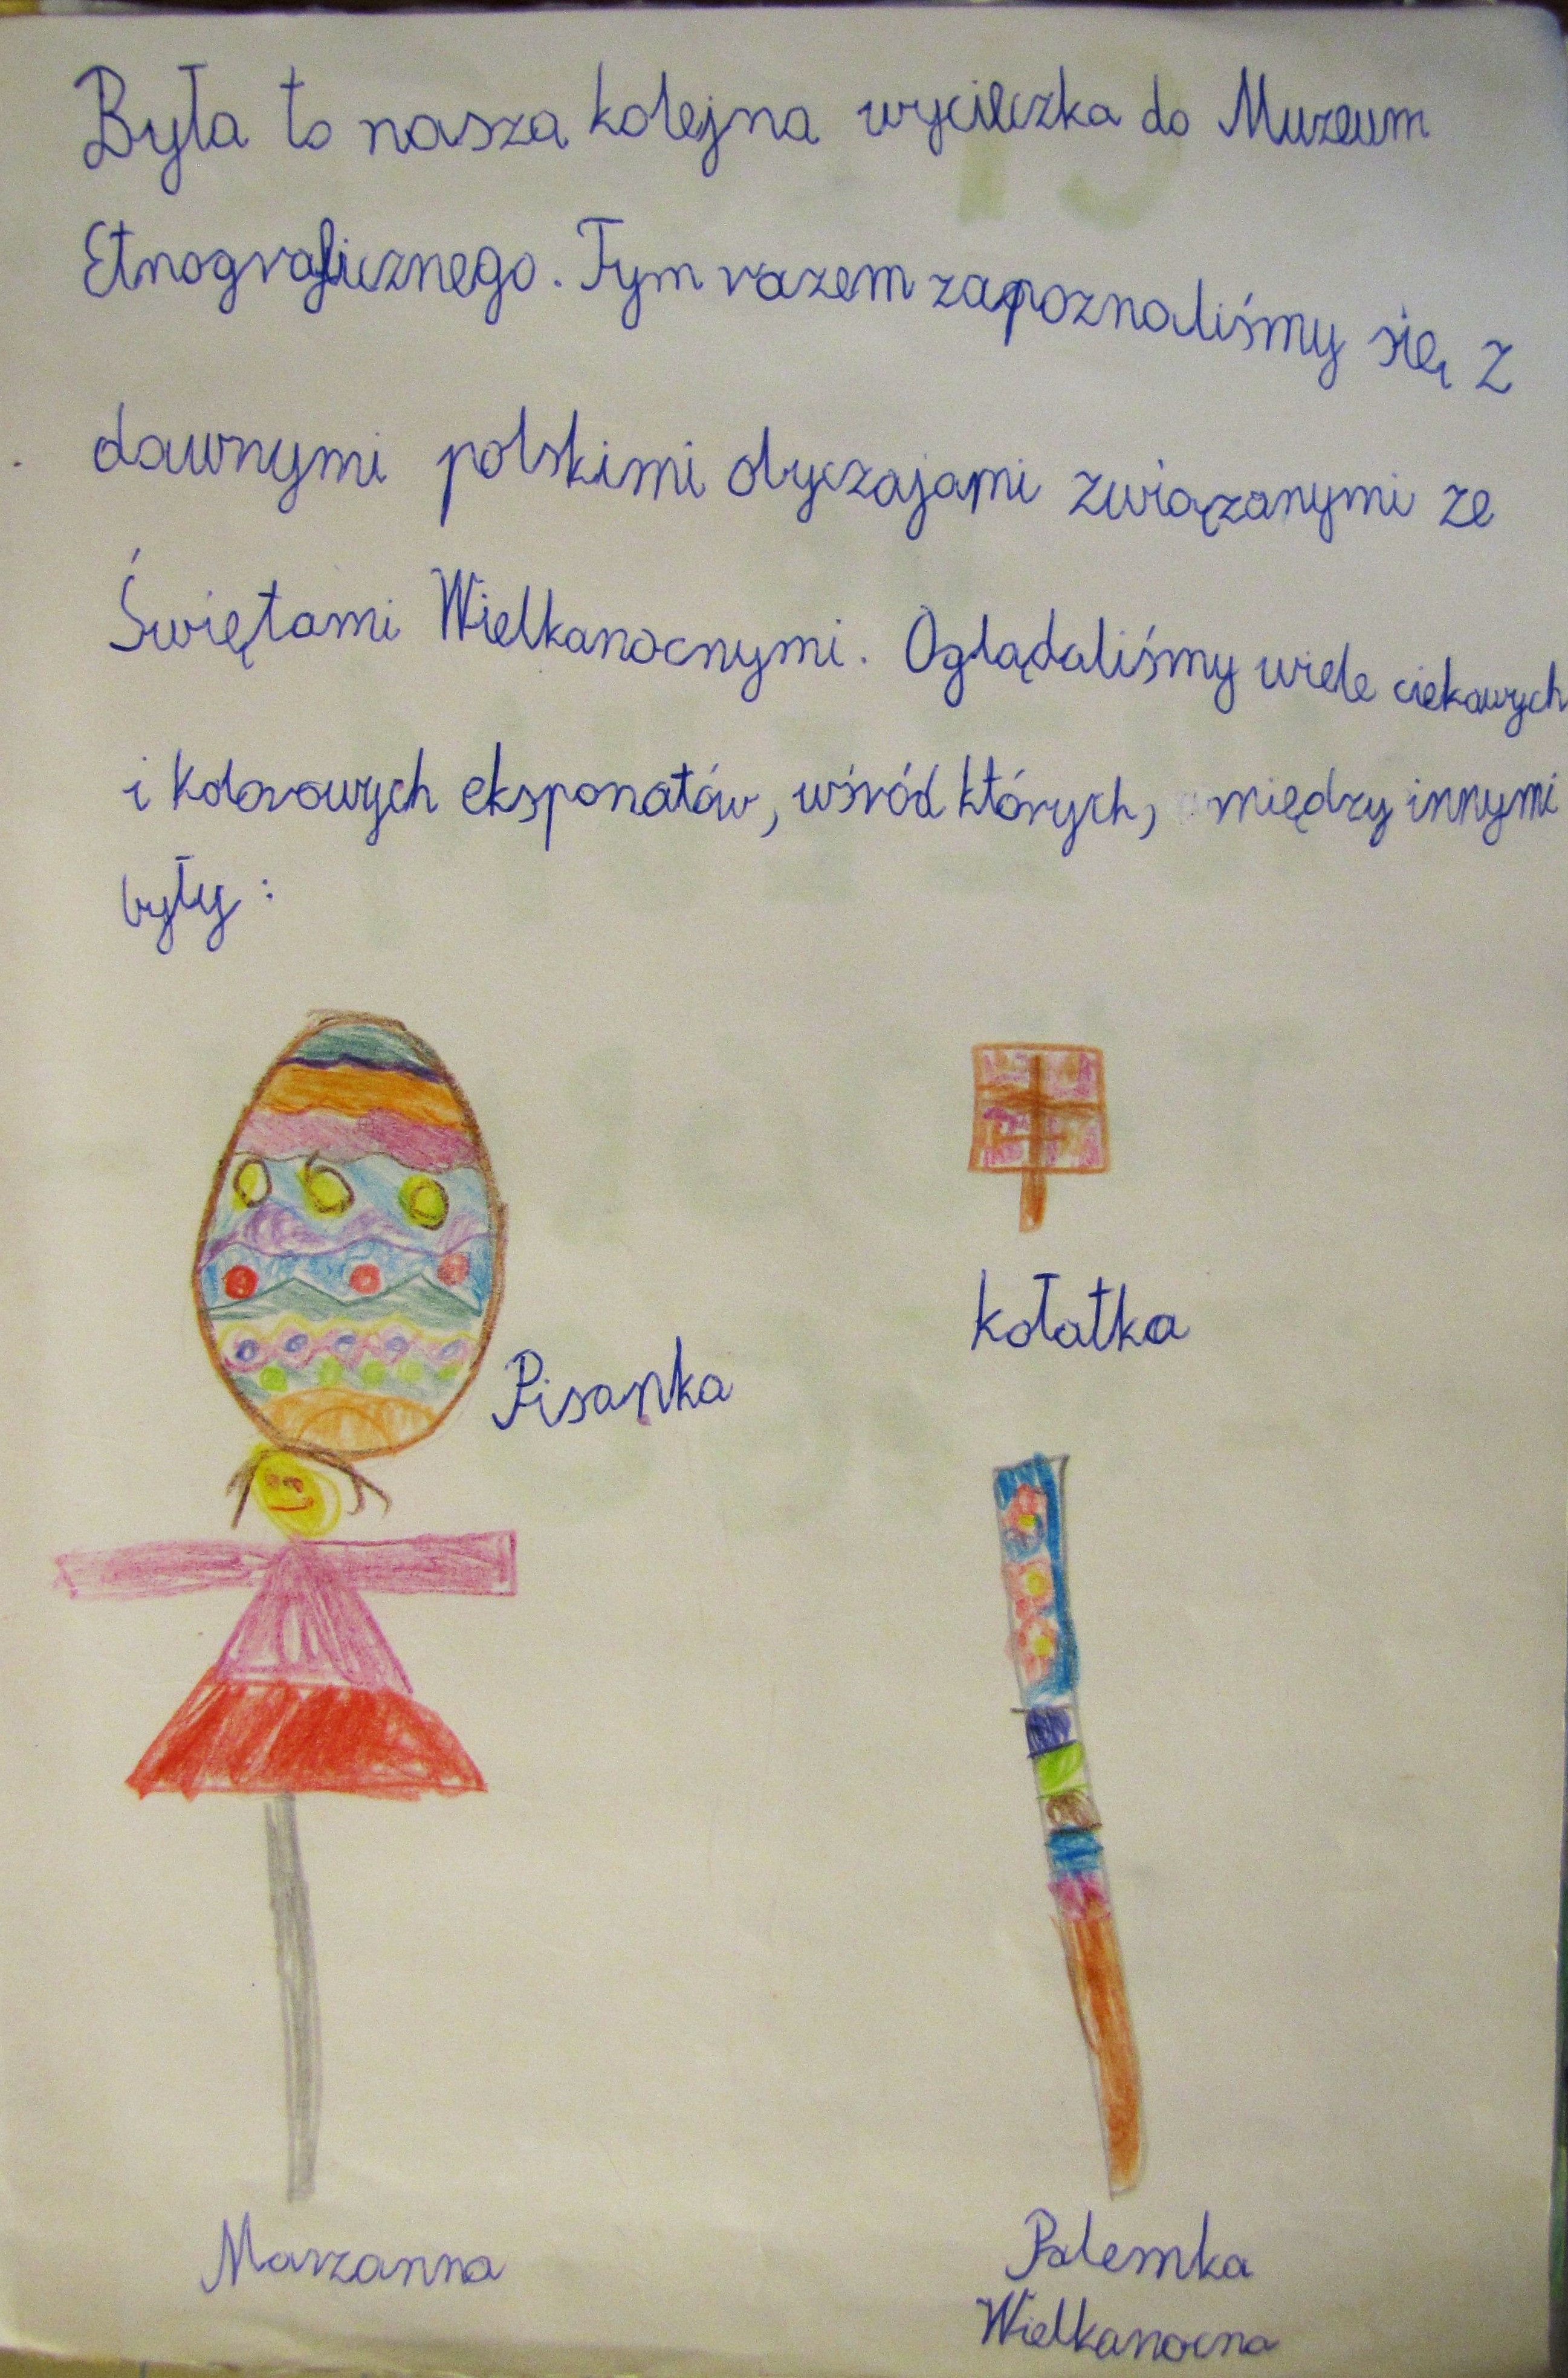 Była to nasza kolejna wycieczka do Muzeum
Etnograficznego. Tym razem zapoznaliśmy się z
dawnymi polskimi obyczajami związanymi ze
Świętami Wielkanocnymi. Oglądaliśmy wiele ciekawych
i kolorowych eksponatów, wśród których, między innymi
były:
kołatka
Pisanka
Marzanna
Palemka
Wielkanocna